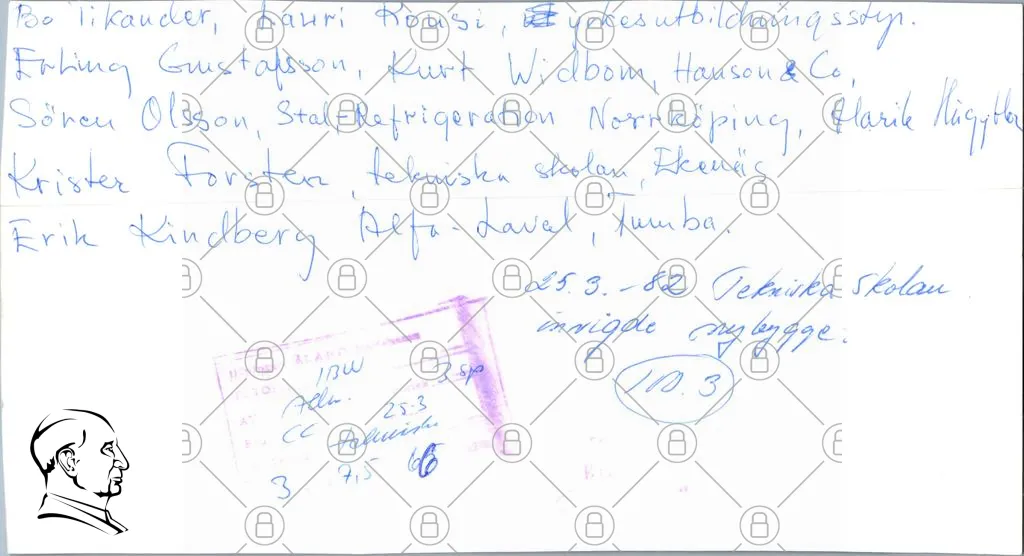 Bo Likander, Lauri Kousi, yrkesutbildningsstyr.
Erling Gustafsson, Kurt Widbom, Hanson & Co,
Sören Olsson, Stal-Refrigeration Norrköping,
Krister Forsten, tekniska skolan, Ekenäs
Erik Kindberg Alfa-Laval, Tumba.
25.3.-82 Tekniska skolan
invigde nybygge.
IBW 3 sp
25.3
CC
3 7,5 66